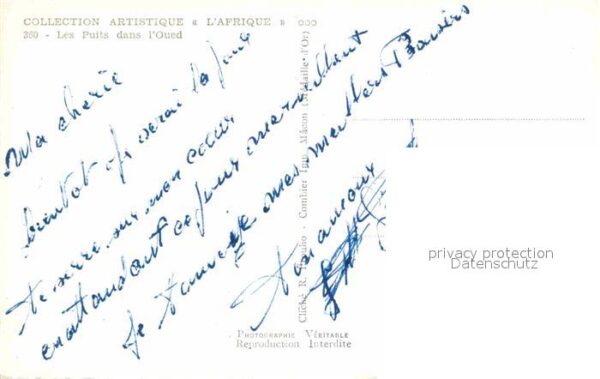 COLLECTION ARTISTIQUE « L'AFRIQUE »
360 - Les Puits dans l'Oued
Ma cherie
bientot je serai le jour
te serre sur mon cœur
en attendant ce jour merveilleux
Je t'envoie mes meilleurs Baisers
Ton amour
Combier Imp. Mâcon (Médaille d'Or)
Cliché R.
PHOTOGRAPHIE VÉRITABLE
Reproduction Interdite
privacy protection
Datenschutz